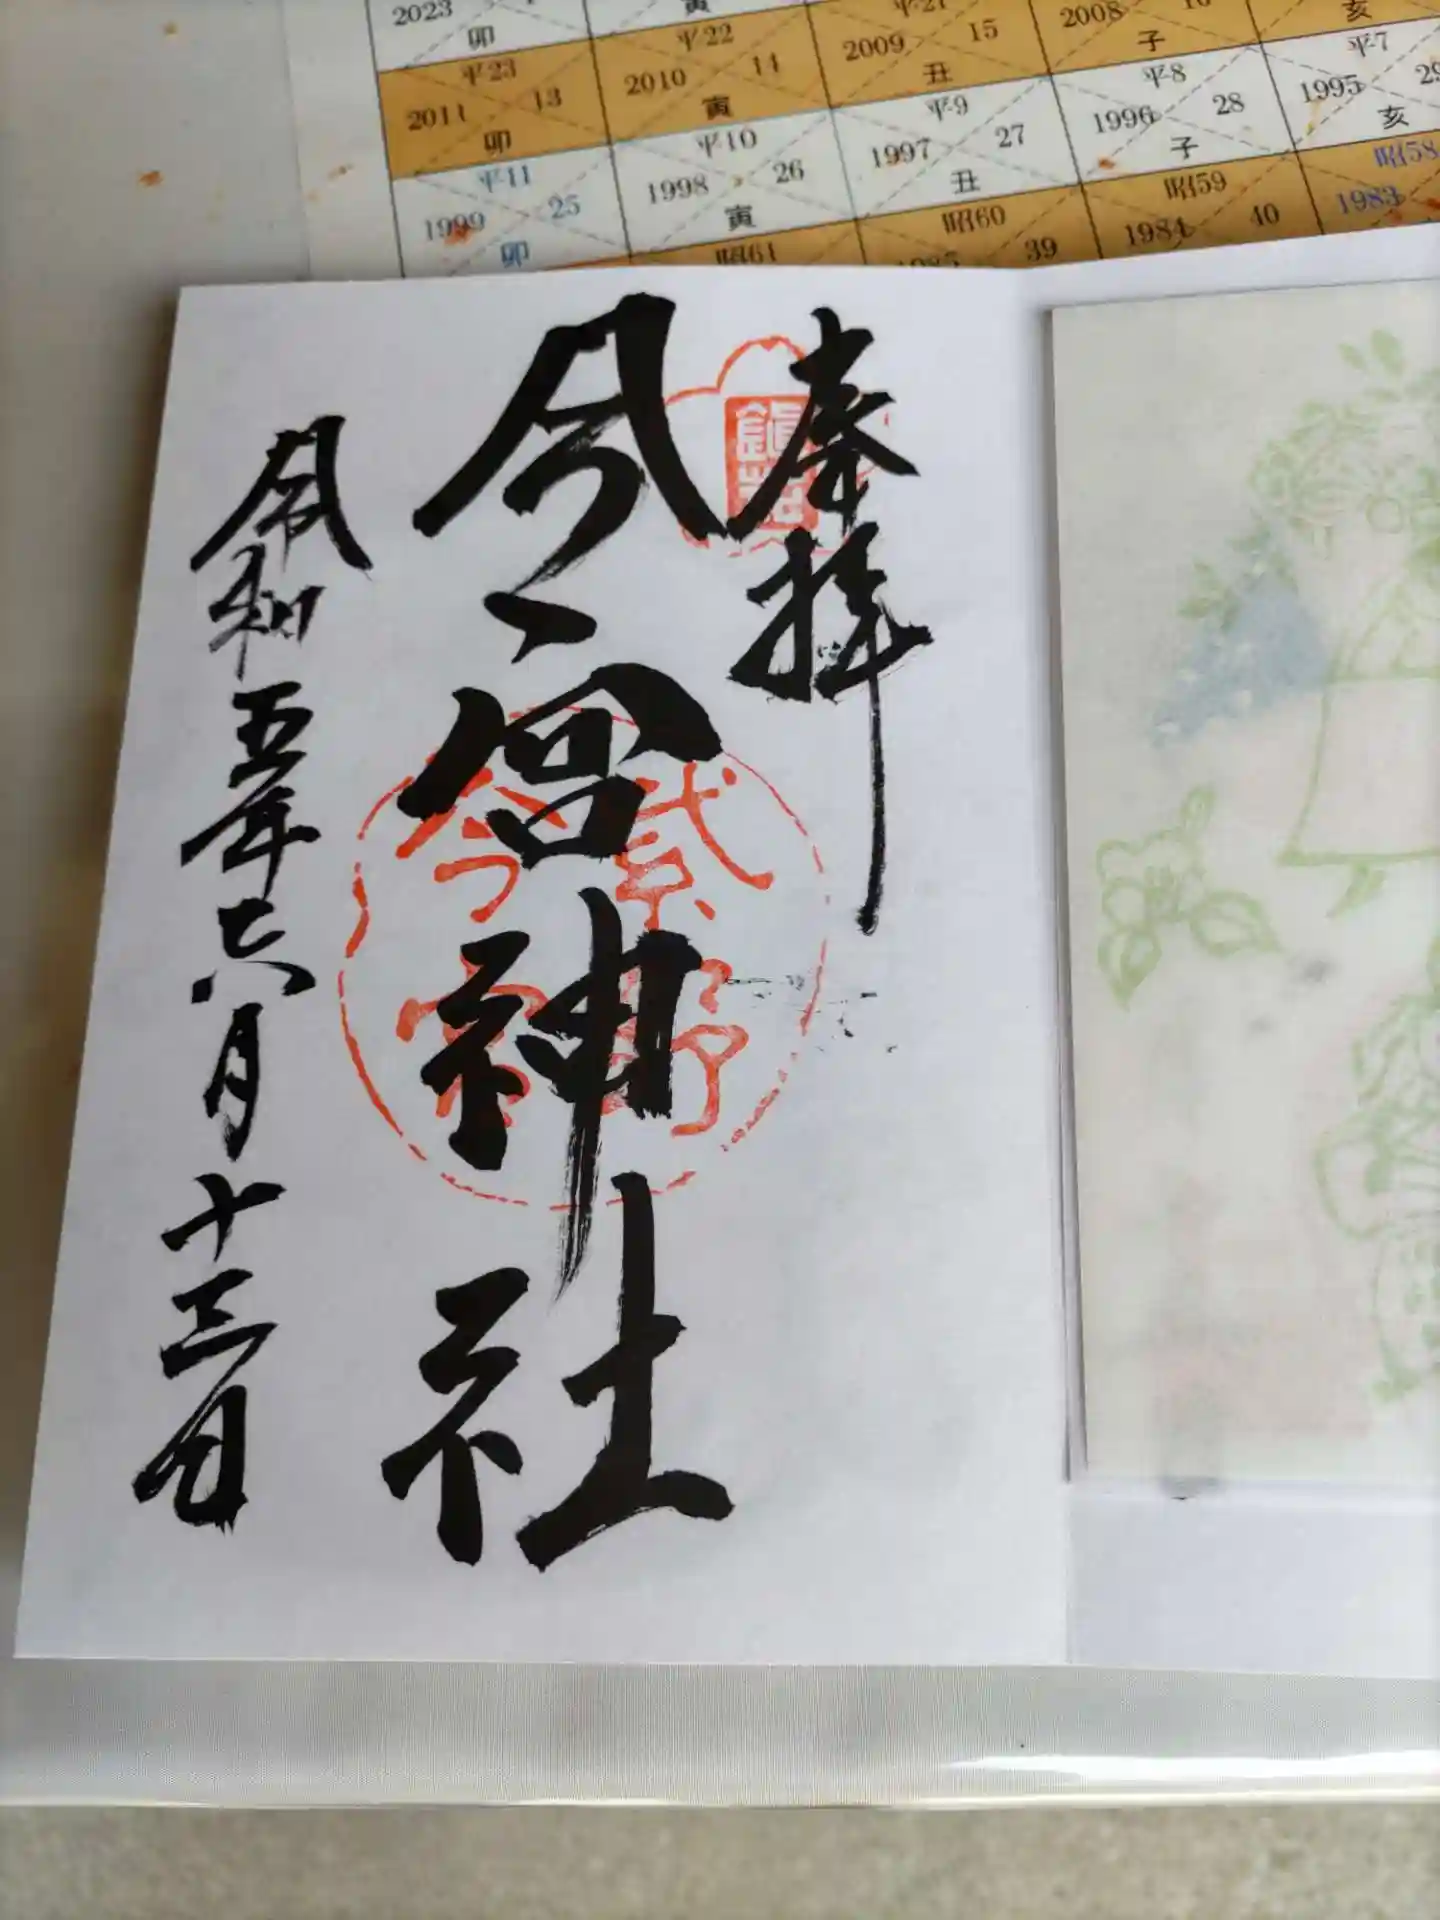 2023
卯
寅
平21
2008
16
亥
平23
2011
13
卯
平22
2010
14
寅
2009
15
丑
子
平11
1999
25
卯
平10
1998
26
寅
平9
1997
27
丑
平8
1996
28
子
平7
1995
29
亥
昭61
昭60
1985
39
昭59
1984
40
昭58
1983
奉拝
今宮神社
令和五年六月十三日
紫野
今宮